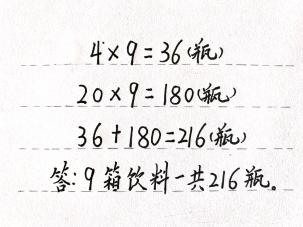 4×9=36(瓶)
20×9=180(瓶)
36+180=216(瓶)
答:9箱饮料一共216瓶。